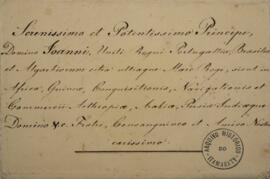 Serenissimo et Potentissimo Principi,
Domino Joanni, Uniti Regni Portugalliæ, Brasiliæ
et Algarbiorum citra ultraque Mare Regi, sicut in
Africa, Guinea, Conquisitionis, Navigationis et
Commercii Aethiopiæ, Arabiæ, Persiæ Indiæque
Domino &c. Fratri, Consanguineo et Amico Nostro
carissimo
ARQUIVO HISTORICO
DO
ITAMARATY